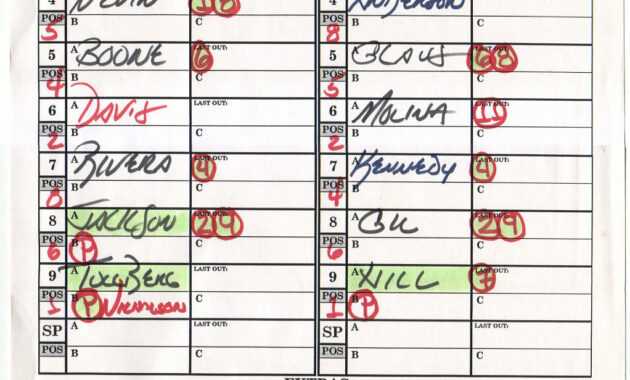 4 A NEVIN 18
POS B C
5
5 A BOONE LAST OUT: 6
POS B C
4
6 A DAVIS LAST OUT:
POS B C
2
7 A RIVERS LAST OUT: 4
POS B C
8 A JACKSON LAST OUT: 29
POS B P C
6
9 A TOLLBERG LAST OUT:
POS B P NICHOLSON C
1
SP A LAST OUT:
POS B C
4 A ANDERSON
POS B C
8
5 A GLAUS LAST OUT: 68
POS B C
5
6 A MOLINA LAST OUT: 11
POS B C
2
7 A KENNEDY LAST OUT: 4
POS B C
4
8 A GIL LAST OUT: 29
POS B C
6
9 A HILL LAST OUT: 7
POS B P C
1
SP A LAST OUT:
POS B C
EXTRAS